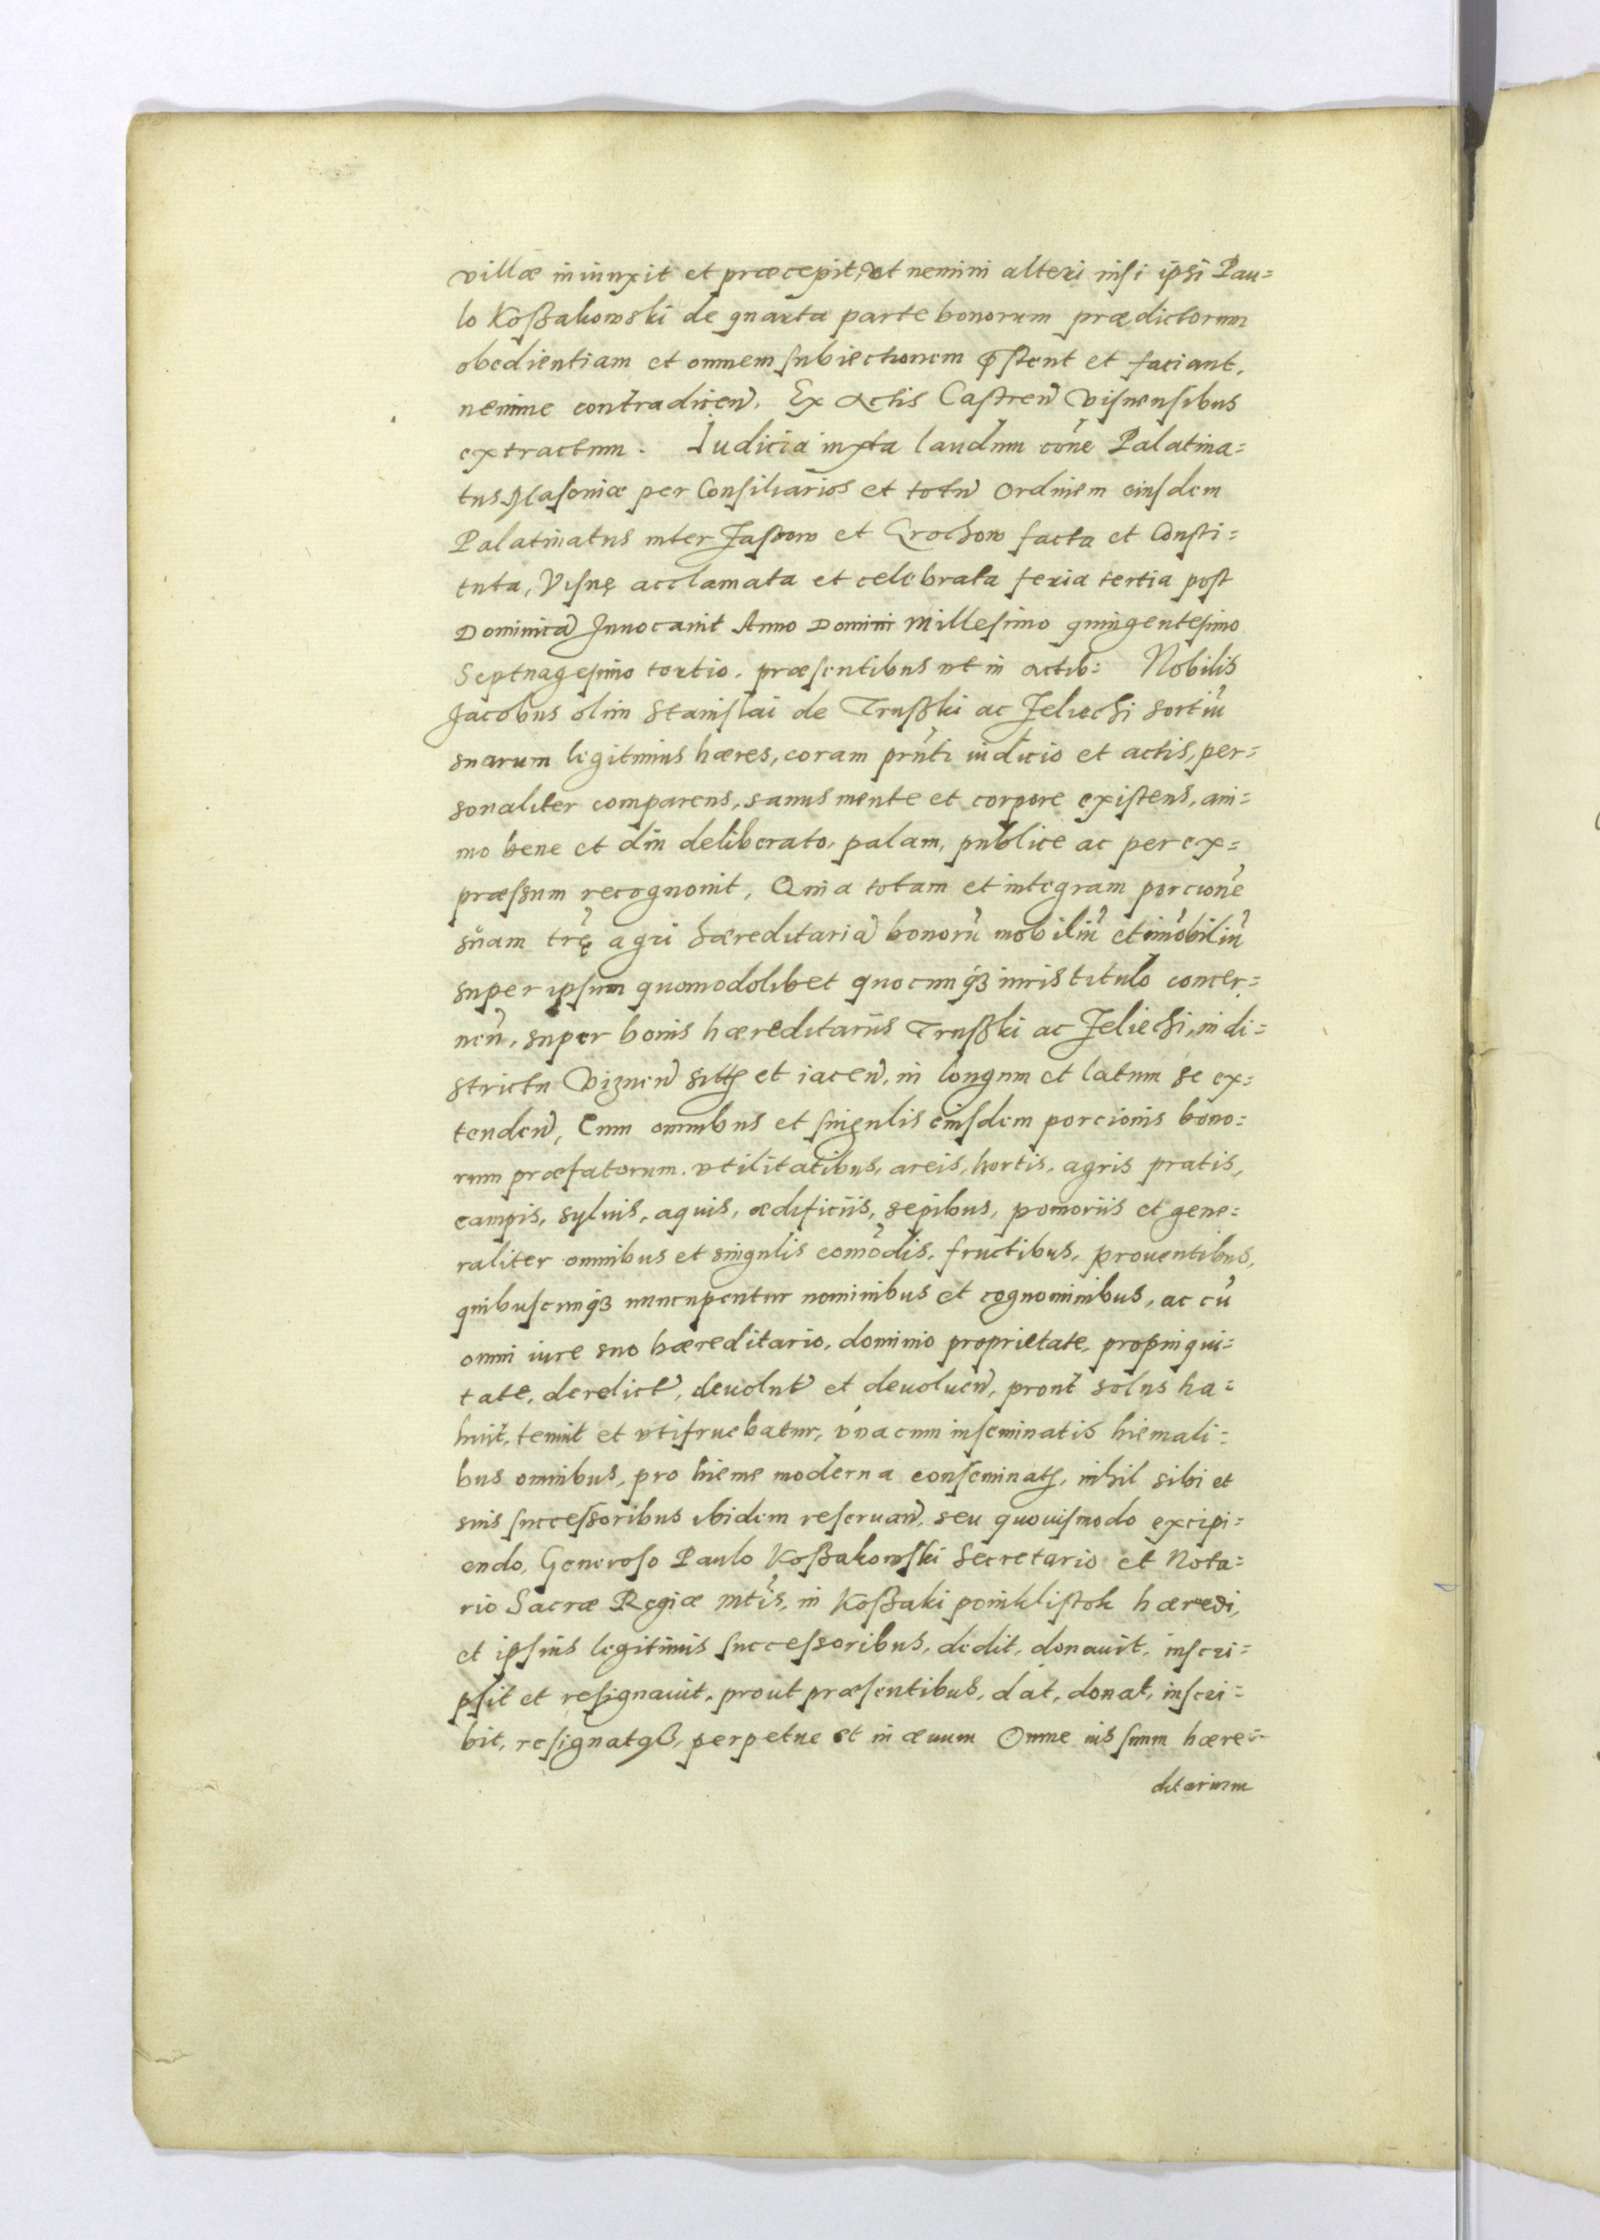 villæ iniunxit et præcepit, vt nemini alteri nisi ipsi Pau=
lo Koßakowski de quarta parte bonorum prædictorum
obedientiam et omnem subiectionem p̄stent et faciant,
nemine contradicen̄. Ex Actis Castren̄ Visnensibus
extractum. Iudicia iuxta laudum con̄e Palatina=
tus Masoniæ per Consiliarios et totū Ordinem eiusdem
Palatinatus inter Jastow et Grochow facta et Consti=
tuta, Visnę acclamata et celebrata feria tertia post
Dominicā Inuocauit Anno Domini Millesimo quingentesimo
Septuagesimo tertio, præsentibus vt in actib: Nobilis
Jacobus olim Stanislai de Trußki ac Jeliechi sortiū
suarum legitimus hæres, coram prn̄ti iudicio et actis, per=
sonaliter comparens, sanus mente et corpore existens, ani=
mo bene et diu deliberato, palam, publice ac per ex=
præssum recognouit, Quia totam et integram porcionē
suam trę̄ agri hæreditariā bonorū mobiliū et im̄obiliū
super ipsum quomodolibet quocunq́ꝫ iuris titulo concer=
nen̄, super bonis hæreditariis Trußki ac Jeliechi, in di=
strictu Viznen̄ sitꝭ et iacen̄, in longum et latum se ex=
tenden̄, Cum omnibus et singulis eiusdem porcionis bono=
rum præfatorum vtilitatibus, areis, hortis, agris pratis,
campis, syluis, aquis, ædificiis, sepibus, pomoriis et gene=
raliter omnibus et singulis com̄odis, fructibus, prouentibus,
quibuscunq́ꝫ nuncupentur nominibus et cognominibus, ac cū
omni iure suo hæreditario, dominio proprietate, propinqui=
tate, derelict̄, deuolut̄ et deuoluen̄, prout solus ha=
buit, tenuit et vtifruebatur, vnacum inseminatis hiemali=
bus omnibus, pro hieme moderna conseminatꝭ, nihil sibi et
suis successoribus ibidem reseruan̄, seu quouismodo excipi=
endo, Generoso Paulo Koßakowski Secretario et Nota=
rio Sacræ Regiæ Mt̄is, in Koßaki poniklistok hæredi,
et ipsius legitimis successoribus, dedit, donauit, inscri=
psit et resignauit, prout præsentibus, dat, donat, inscri=
bit, resignatqꝫ, perpetue et in æuum Omne ius suum hære=
ditarium